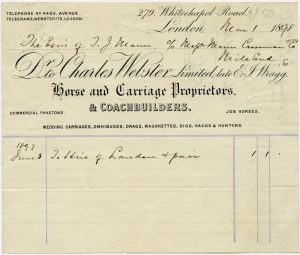 TELEPHONE Nº 4460, AVENUE.
TELEGRAMS, WEBSTERITE, LONDON.
279, Whitechapel Road,
London, Mar 1 1898
The Exors of T. J. Mann.
Dr. to Charles Webster Limited, late E. J. Wragg.
Horse and Carriage Proprietors,
& COACHBUILDERS.
COMMERCIAL PHAETONS.
JOB HORSES.
WEDDING CARRIAGES, OMNIBUSES, DRAGS, WAGONETTES, GIGS, HACKS & HUNTERS.
1897
June 3 To Hire of Landau & pair 1 1